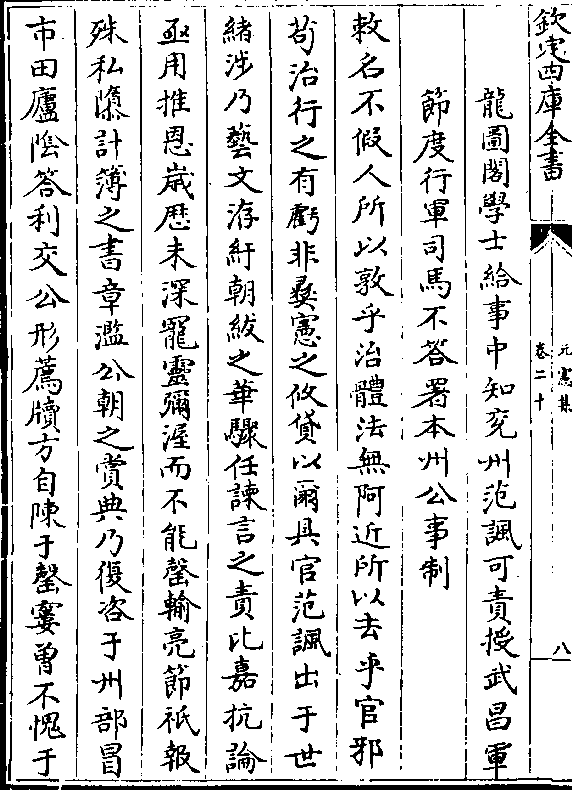 欽定四庫全書
元憲集
卷二十
八
龍圖閣學士給事中知兖州范諷可責授武昌軍
節度行軍司馬不簽署本州公事制
敕名不假人所以敦乎治體法無阿近所以去乎官邪
苟治行之有虧非彞憲之攸貸以爾具官范諷出于世
緒涉乃藝文洊紆朝紱之華驟任諫言之責比嘉抗論
亟用推恩歳歴未深寵靈彌渥而不能罄輸亮節祇報
殊私隳計簿之書章濫公朝之賞典乃復咨于州部冒
市田廬陰答利交公形薦牘方自陳于罄窶曽不愧于